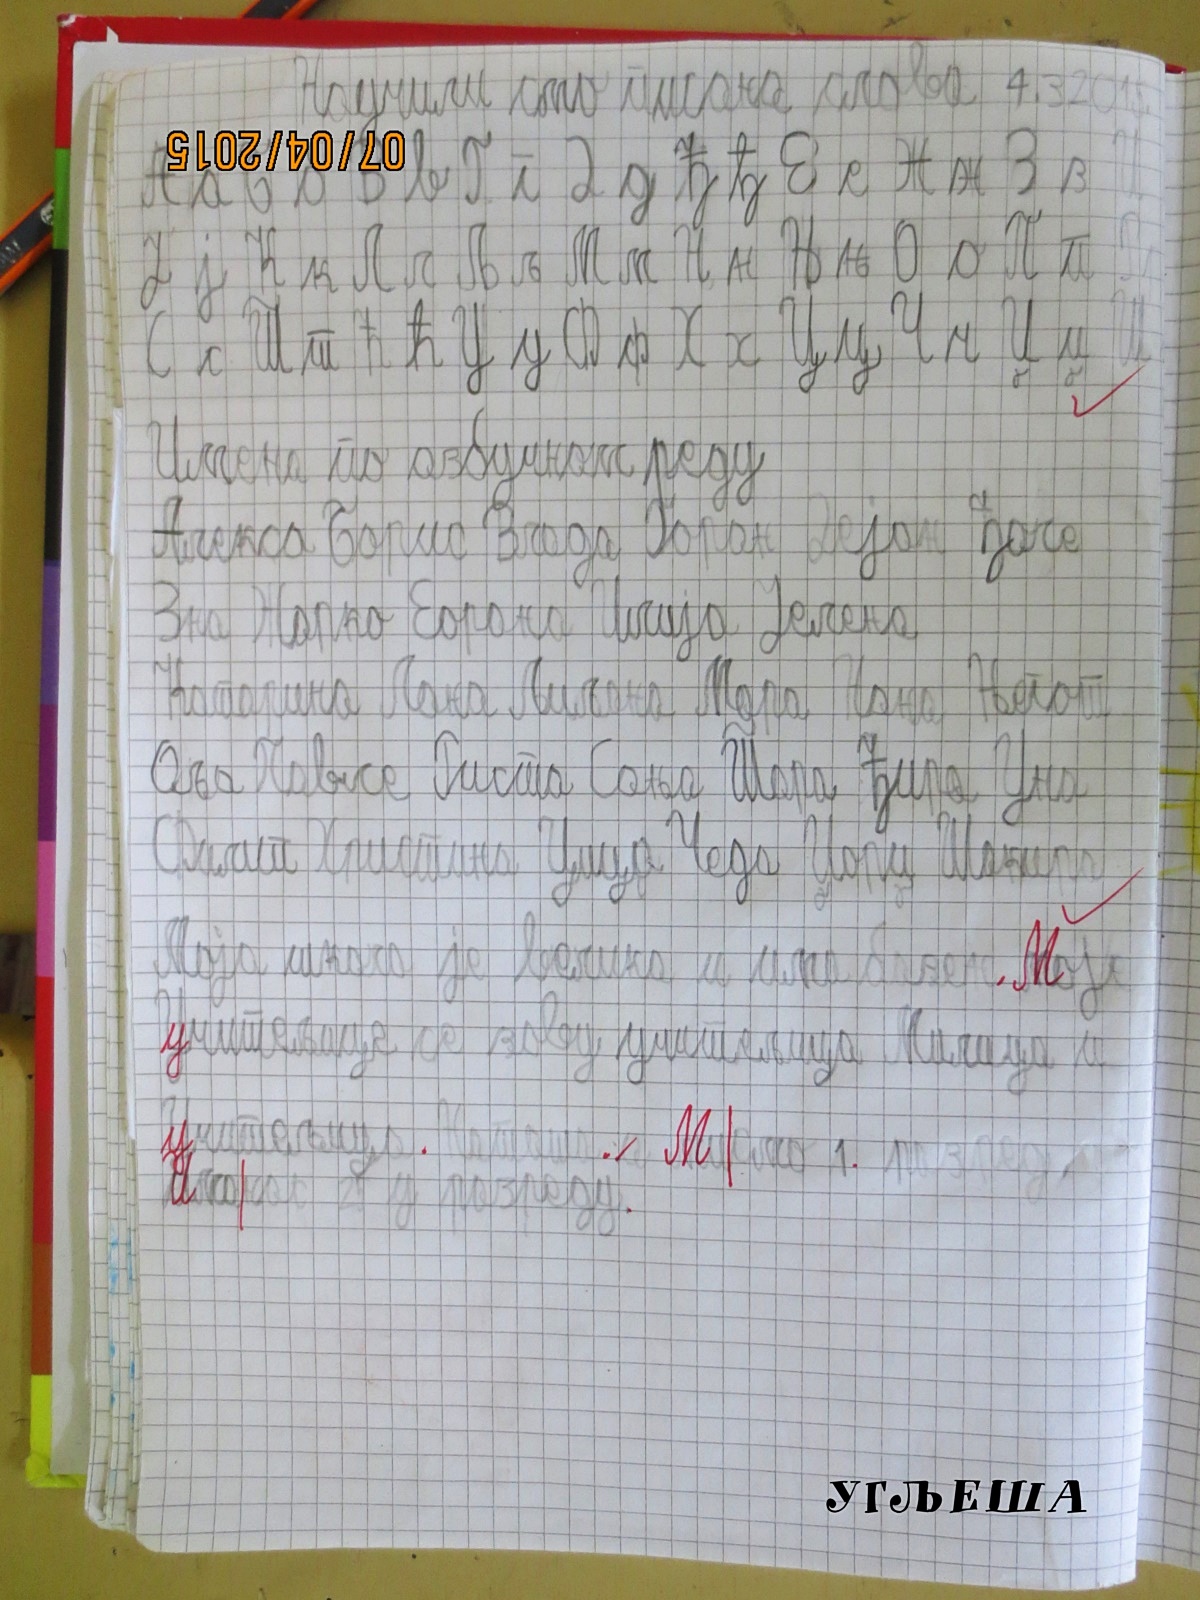 Научили смо писана слова 4.3.2015.
07/04/2015
А а Б б В в Г г Д д Ђ ђ Е е Ж ж З з И
Ј ј К к Л л Љ љ М м Н н Њ њ О о П п
С с Т т Ћ ћ У у Ф ф Х х Ц ц Ч ч Џ џ Ш
Имена по азбучном реду
Алекса Борис Влада Горан Дејан Ђоле
Жарко Зорана Илија Јелена
Катарина Лана Љиљана Мара Нана
Оља Павле Риста Сања Тара Ћира Уна
Филип Христина Чеда Џорџ Шакира
Моја школа је велика и има базен. Моје
учитељице се зову учитељица Милица и
учитељица. Наташа. М 1. разред
у разреду.
УГЉЕША